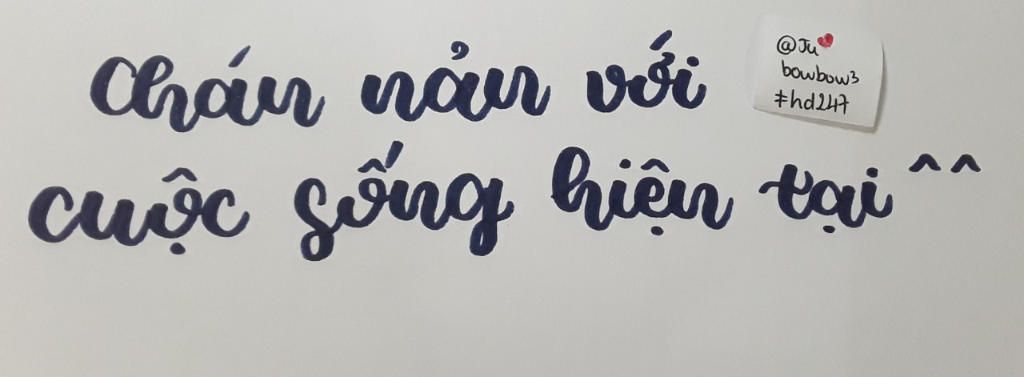 chán nản với
cuộc sống hiện tại ^^
@Ju
bowbow3
#hd247